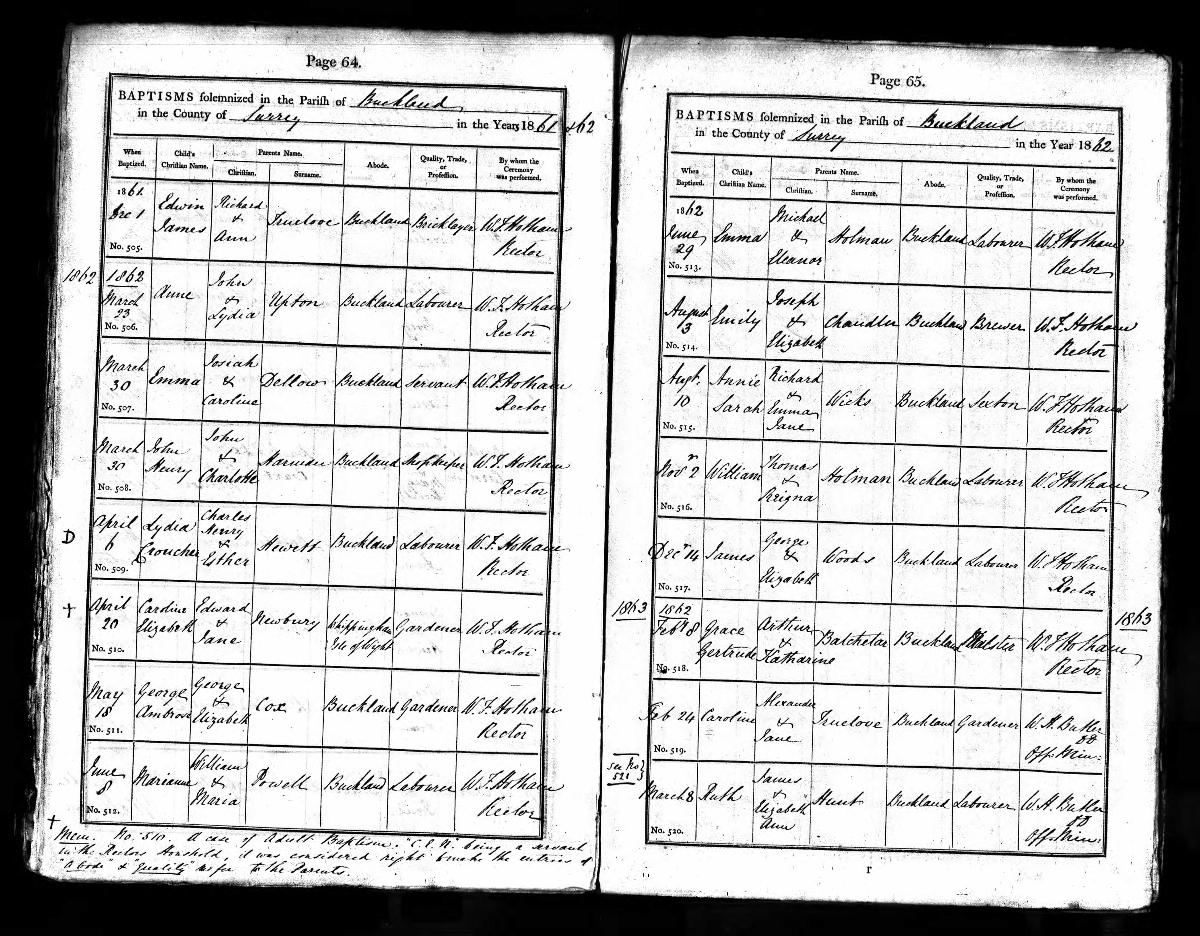 Page 64.
BAPTISMS solemnized in the Parish of Buckland
in the County of Surrey in the Years 1861 & 62
When Baptized. Child's Christian Name. Parents Name. Christian. Surname. Abode. Quality, Trade, or Profession. By whom the Ceremony was performed.
1861.
Dec 1 Edwin James Richard & Ann Truelove Buckland Bricklayer W. F. Hotham Rector
No. 505.
1862
1862 March 23 Anne John & Lydia Upton Buckland Labourer W. F. Hotham Rector
No. 506.
March 30 Emma Josiah & Caroline Dellow Buckland Servant W. F. Hotham Rector
No. 507.
March 30 John Henry John & Charlotte Harman Buckland Shopkeeper W. F. Hotham Rector
No. 508.
D
April 6 Lydia Croucher Charles Henry & Esther Hewett Buckland Labourer W. F. Hotham Rector
No. 509.
+
April 20 Caroline Elizabeth Edward & Jane Newbury Whippingham Isle of Wight Gardener W. F. Hotham Rector
No. 510.
May 18 George Ambrose George & Elizabeth Cox Buckland Gardener W. F. Hotham Rector
No. 511.
June 8 Marianne William & Maria Powell Buckland Labourer W. F. Hotham Rector
No. 512.
+ Mem. No. 510. A case of Adult Baptism. "C. E. N." being a servant
in the Rectors Household, it was considered right to make the entries of
"Abode" & "Quality" refer to the Parents.
Page 65.
BAPTISMS solemnized in the Parish of Buckland
in the County of Surrey in the Year 1862
When Baptized. Child's Christian Name. Parents Name. Christian. Surname. Abode. Quality, Trade, or Profession. By whom the Ceremony was performed.
1862
June 29 Emma Michael & Eleanor Holman Buckland Labourer W. F. Hotham Rector
No. 513.
August 13 Emily Joseph & Elizabeth Chandler Buckland Brewer W. F. Hotham Rector
No. 514.
Augt. 10 Annie Sarah Richard & Emma Jane Wicks Buckland Sexton W. F. Hotham Rector
No. 515.
Novr 2 William Thomas & Reigna Holman Buckland Labourer W. F. Hotham Rector
No. 516.
Decr 14 James George & Elizabeth Woods Buckland Labourer W. F. Hotham Rector
No. 517.
1863
1863
1862
Feby 8 Grace Gertrude Arthur & Katharine Batchelar Buckland Malster W. F. Hotham Rector
No. 518.
Feb 24 Caroline Alexander & Jane Truelove Buckland Gardener W. H. Butler Off. Min:
No. 519.
see No 521
March 8 Ruth James & Elizabeth Ann Hunt Buckland Labourer W. H. Butler Off. Min:
No. 520.